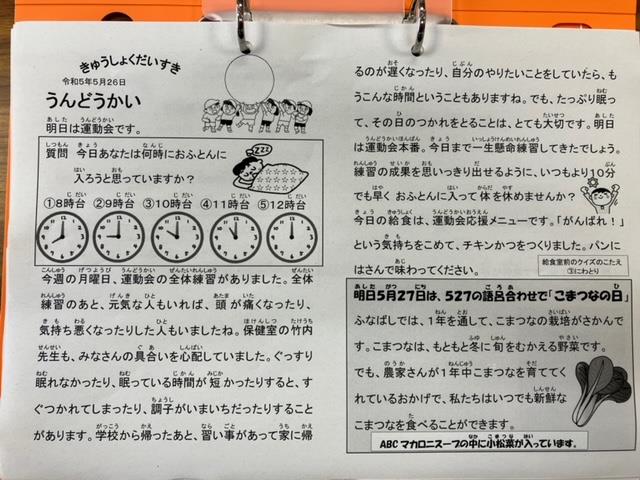 きゅうしょくだいすき
令和5年5月26日
うんどうかい
明日は運動会です。
質問 今日あなたは何時におふとんに
入ろうと思っていますか?
①8時台 ②9時台 ③10時台 ④11時台 ⑤12時台
今週の月曜日、運動会の全体練習がありました。全体
練習のあと、元気な人もいれば、頭が痛くなったり、
気持ち悪くなったりした人もいましたね。保健室の竹内
先生も、みなさんの具合いを心配していました。ぐっすり
眠れなかったり、眠っている時間が短かったりすると、す
ぐつかれてしまったり、調子がいまいちだったりすること
があります。学校から帰ったあと、習い事があって家に帰
るのが遅くなったり、自分のやりたいことをしていたら、も
うこんな時間ということもありますね。でも、たっぷり眠っ
て、その日のつかれをとることは、とても大切です。明日
は運動会本番。今日まで一生懸命練習してきたでしょう。
練習の成果を思いっきり出せるように、いつもより10分
でも早く おふとんに入って 体を休めませんか?
今日の給食は、運動会応援メニューです。「がんばれ!」
という気持ちをこめて、チキンかつをつくりました。パンに
はさんで味わってください。
給食室前のクイズのこたえ
③にわとり
明日5月27日は、527の語呂合わせで「こまつなの日」
ふなばしでは、1年を通して、こまつなの栽培がさかんで
す。こまつなは、もともと冬に旬をむかえる野菜です。
でも、農家さんが1年中こまつなを育ててく
れているおかげで、私たちはいつでも新鮮な
こまつなを食べることができます。
ABCマカロニスープの中に小松菜が入っています。